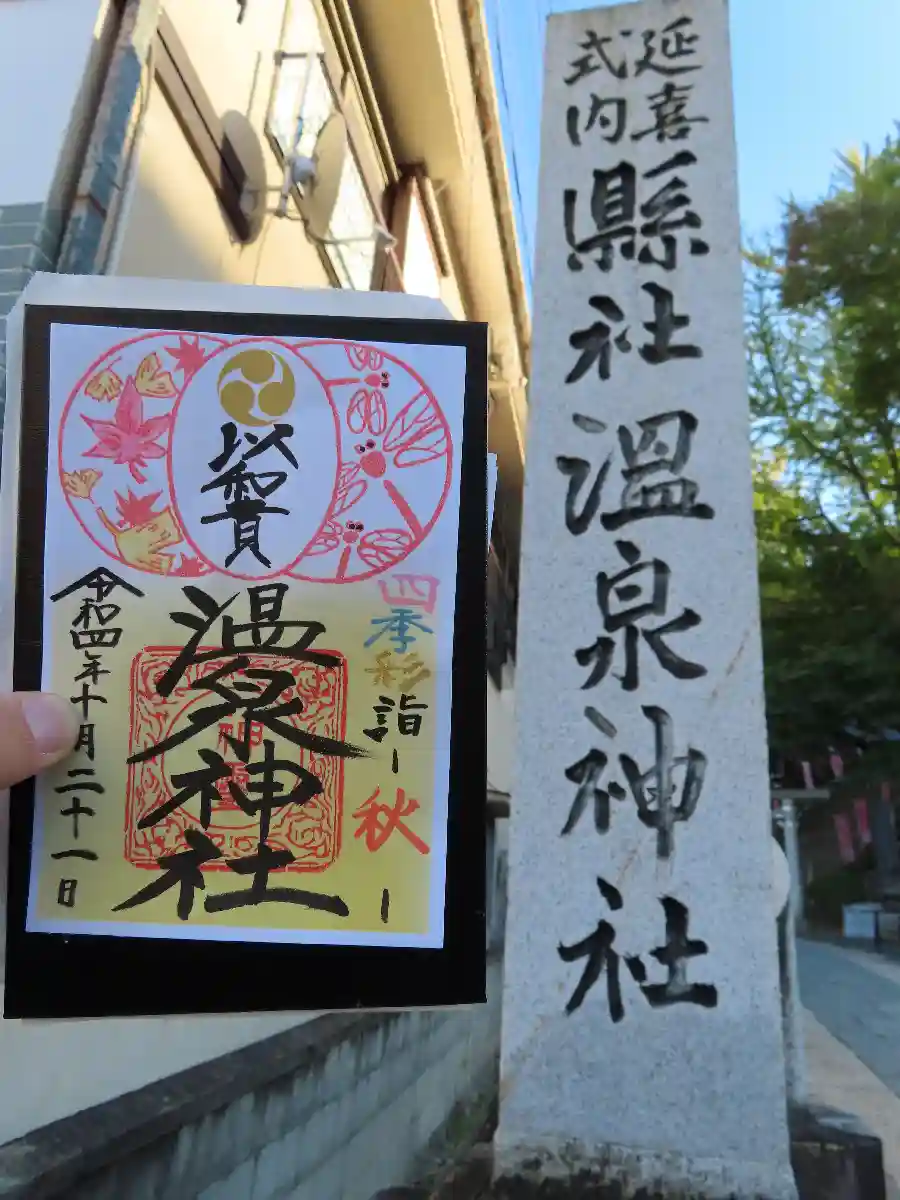 延喜
式内
縣社温泉神社
以和貴
四季彩
詣ー秋ー
温泉神社
令和四年十月二十一日